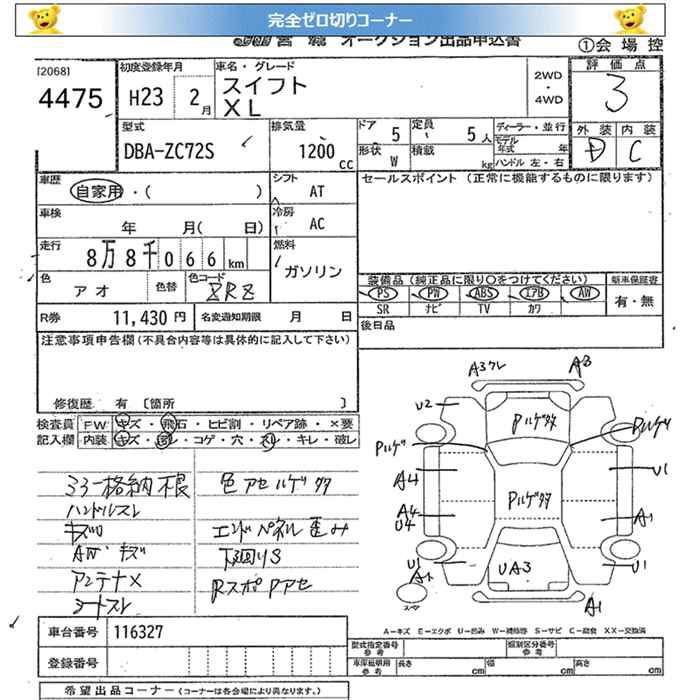 完全ゼロ切りコーナー
オークション出品申込書
①会場控
[2068]
4475
初度登録年月
H23 2月
車名・グレード
スイフト
XL
2WD
・
4WD
評価点
3
外装 内装
D C
型式
DBA-ZC72S
排気量
1200cc
ドア 5
形状 W
定員 5人
積載 kg
ディーラー・並行
モデル年式 年
ハンドル 左・右
車歴
自家用・( )
シフト AT
車検
年 月( 日)
冷房 AC
走行
8万8千066km
燃料
ガソリン
色
アオ
色替
色コード
ZRZ
R券 11,430円
名変通知期限 月 日
セールスポイント (正常に機能するものに限ります)
装備品 (純正品に限り○をつけてください)
PS PW ABS エアB AW
SR ナビ TV カワ
新車保証書
有・無
後日品
注意事項申告欄(不具合内容等は具体的に記入して下さい)
修復歴 有 〔箇所 〕
検査員記入欄
FW キズ・飛石・ヒビ割・リペア跡・×要
内装 キズ・・コゲ・穴・スレ・キレ・破レ
ミラー格納不良
ハンドルスレ
キズ
AW・キズ
アンテナX
シートスレ
色アセルゲ多
エンドパネル歪み
下回りS
Rスポアセ
A3クレ
A3
U2
ハルゲ多
ハルゲ
ハルゲ
A4
U1
ハルゲ多
A4
U4
A1
U1
A1
UA3
U1
A1
A-キズ E-エクボ U-凹み W-補修跡 S-サビ C-腐食 XX-交換済
車台番号 116327
登録番号
型式指定番号 参考
類別区分番号 参考
車庫証明用 参考
長さ cm 幅 cm 高さ cm
希望出品コーナー (コーナーは各会場により異なります。)